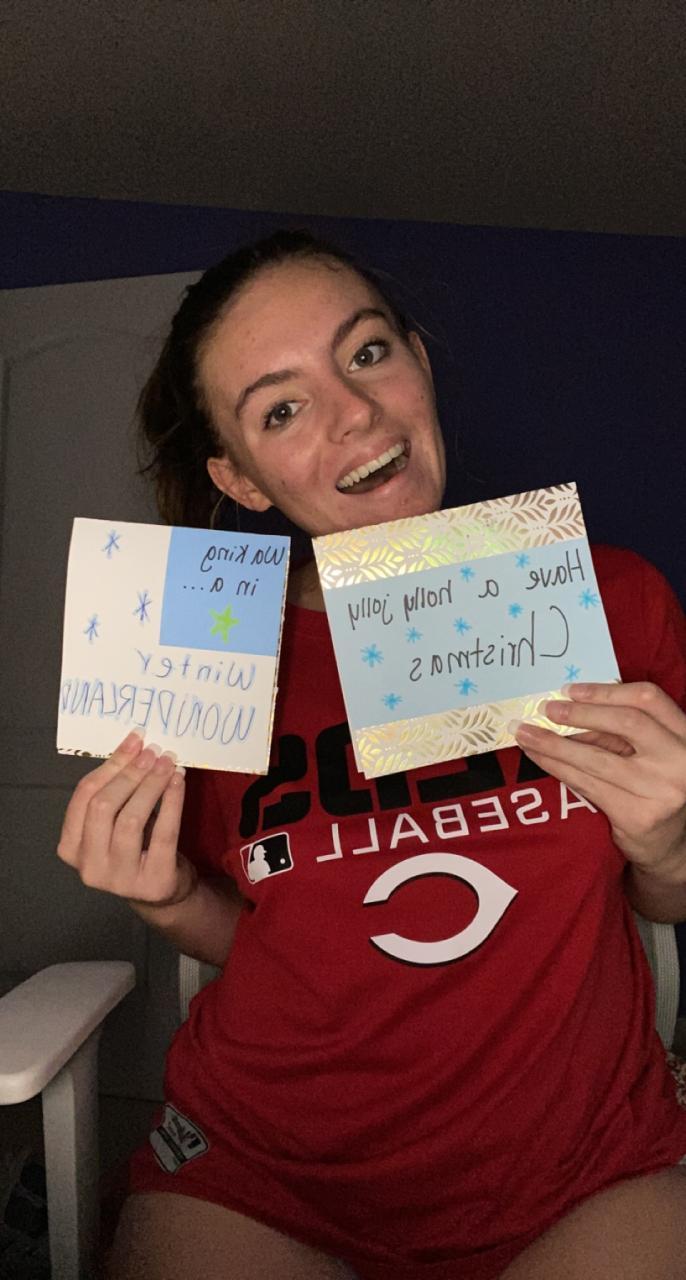 Waking
in a...
Winter
WONDERLAND
Have a holly jolly
Christmas
REDS
BASEBALL